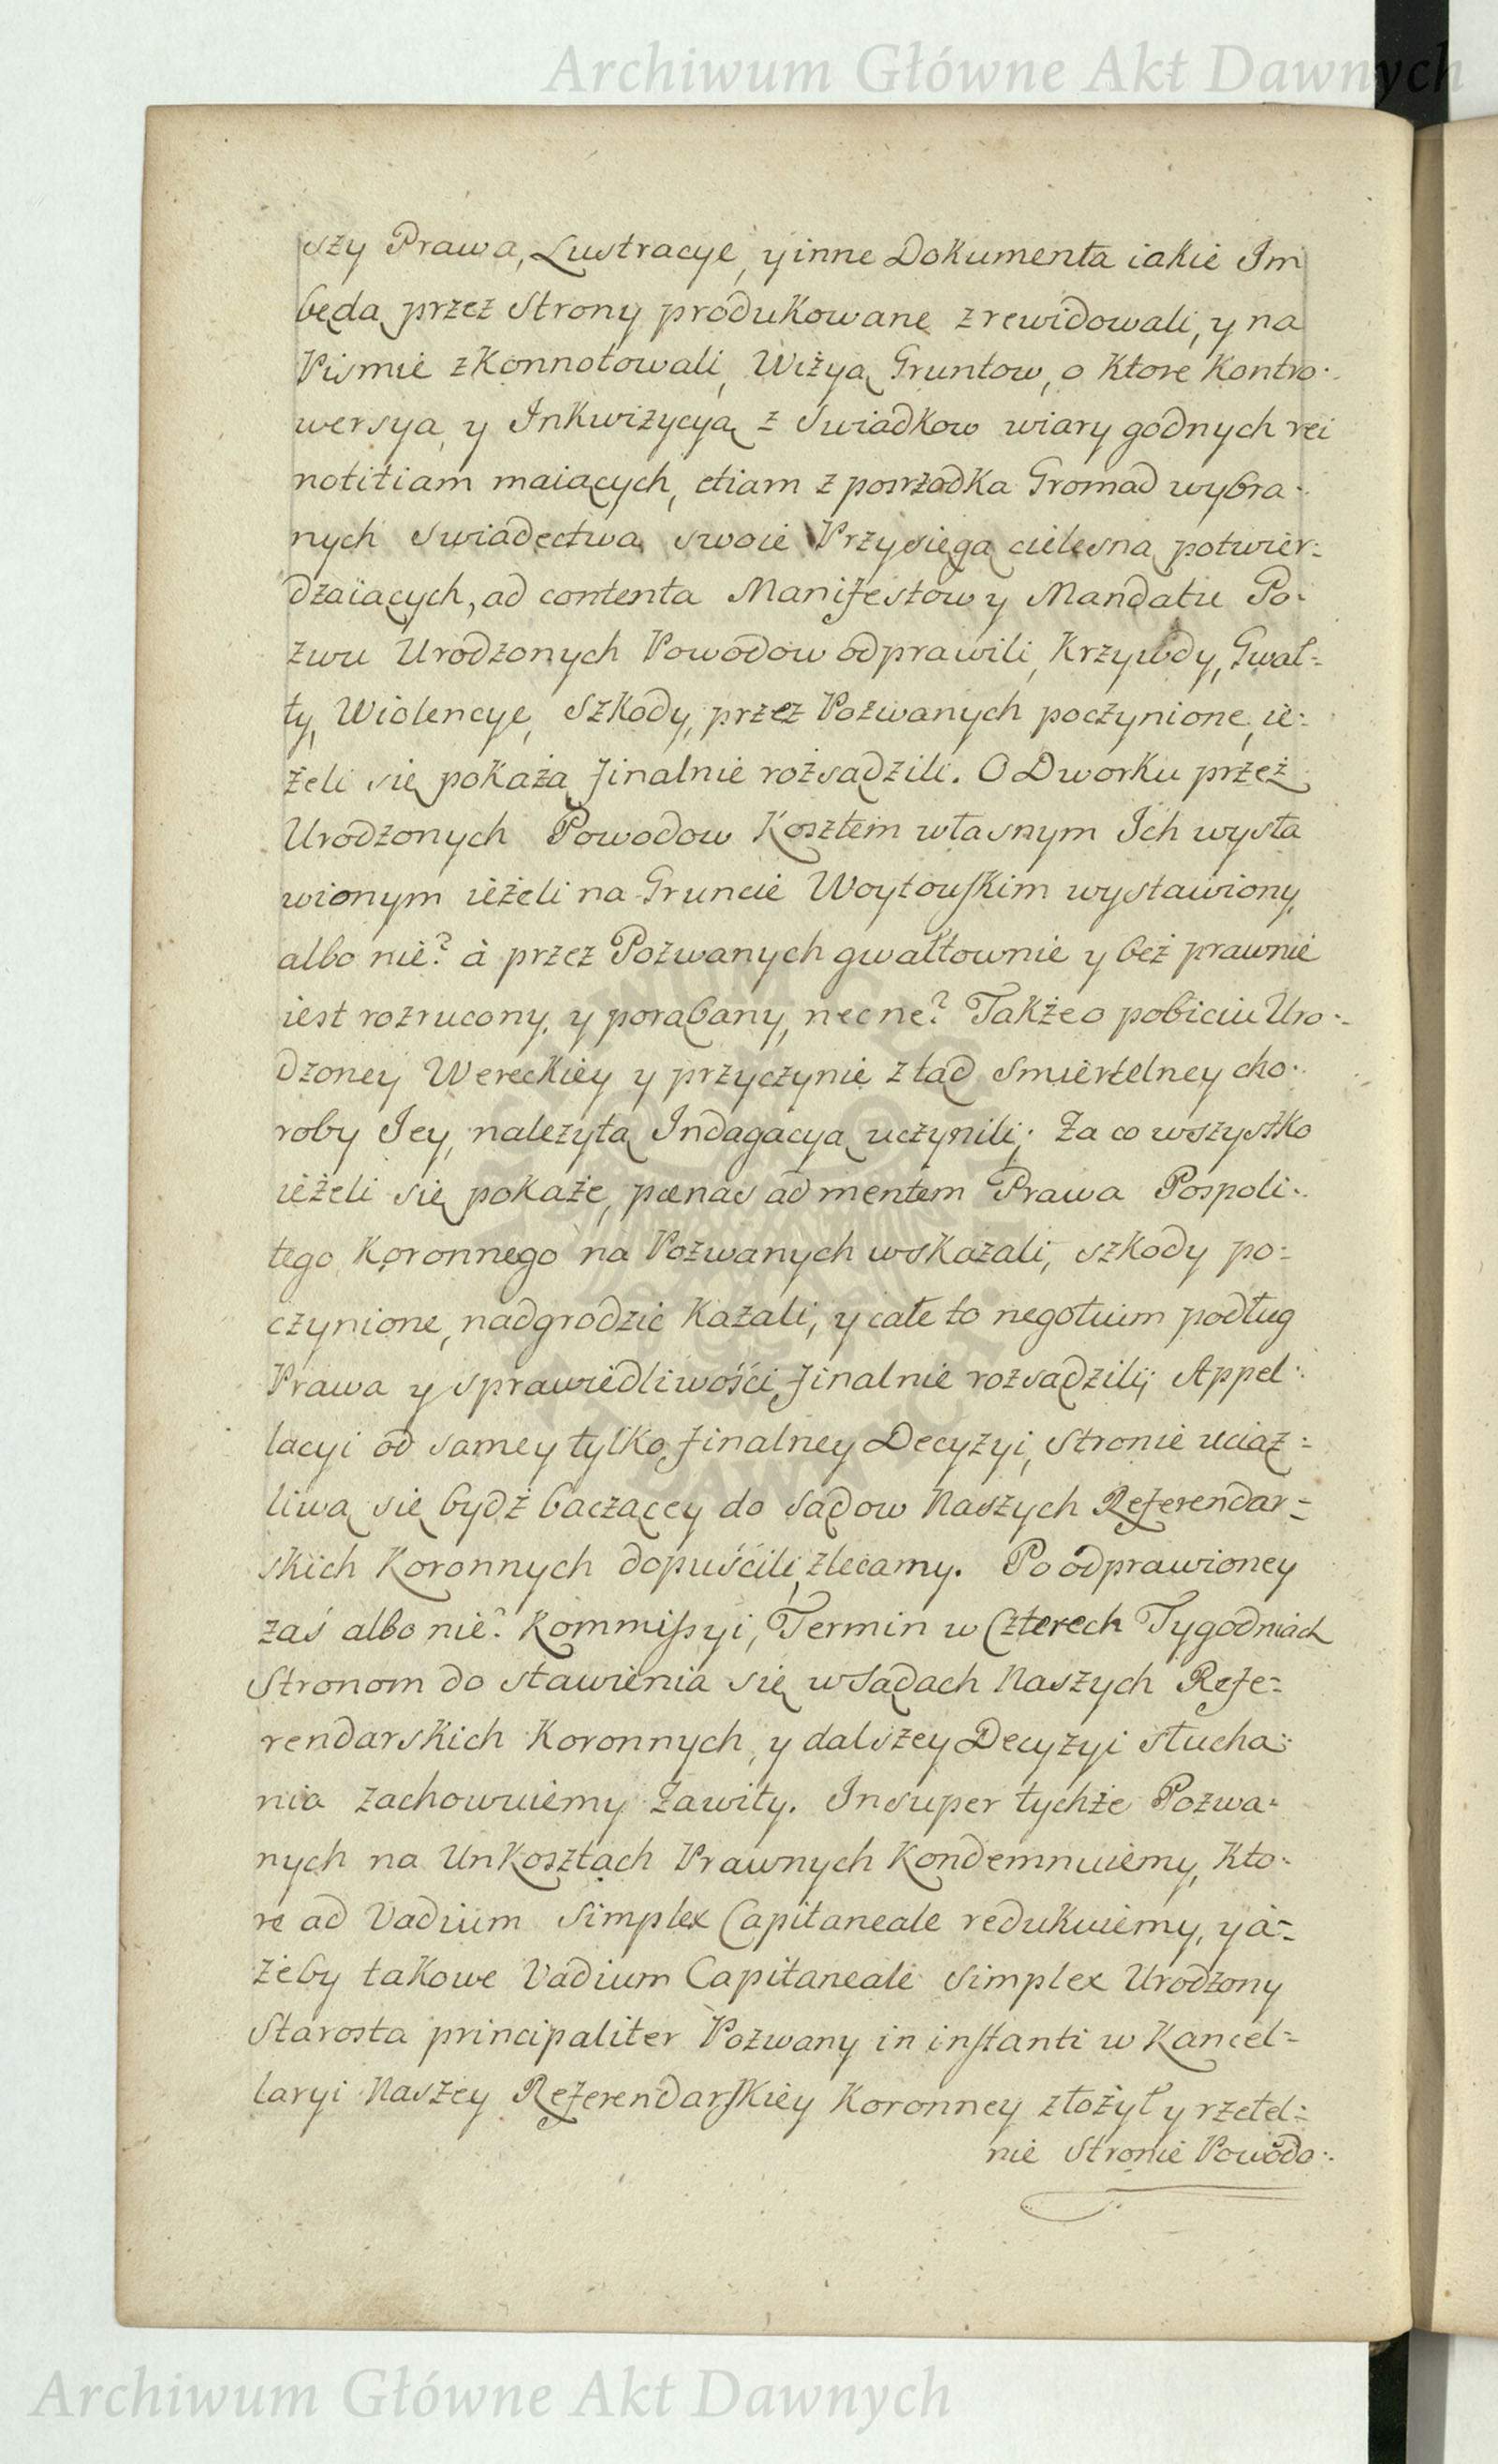 Archiwum Główne Akt Dawnych
szy Prawa, Lustracye, y inne Dokumenta iakie Im
będą przez Strony produkowane zrewidowali, y na
Pismie zkonnotowali, Wizyą Gruntow, o ktore kontro:
wersya, y Inkwizycyą z Swiadkow wiary godnych rei
notitiam maiących, etiam z posrzodka Gromad wybra:
nych swiadectwa swoie Przysięgą cielesną potwier:
dzaiących, ad contenta Manifestow y Mandatu Po:
zwu Urodzonych Powodow odprawili, Krzywdy, Gwał=
ty, Wiolencye, Szkody, przez Pozwanych poczynione, ie:
żeli się pokażą finalnie rozsądzili. O Dworku przez
Urodzonych Powodow Kosztem własnym Ich wysta
wionym ieżeli na Gruncie Woytowskim wystawiony,
albo nie? à przez Pozwanych gwałtownie y bez prawnie
iest rozrucony, y porąbany, necne? Także o pobiciu Uro:
dzoney Wereckiey y przyczynie ztąd smiertelney cho:
roby Jey, należytą Indagacyą uczynili; Za co wszystko
ieżeli się pokaże, pœnas ad mentem Prawa Pospoli:
tego Koronnego na Pozwanych wskazali, szkody po=
czynione, nadgrodzić kazali, y całe to negotium podług
Prawa y sprawiedliwości finalnie rozsądzili; Appel:
lacyi od samey tylko finalney Decyzyi, Stronie uciąż=
liwą się bydź baczącey do Sądow Naszych Referendar=
skich Koronnych dopuścili, zlecamy. Po odprawioney
zaś albo nie? Kommissyi, Termin w Czterech Tygodniach
Stronom do stawienia się w Sądach Naszych Refe=
rendarskich Koronnych, y dalszey Decyzyi słucha:
nia zachowuiemy Zawity. Insuper tychże Pozwa=
nych na Unkosztach Prawnych Kondemnuiemy, Kto:
re ad Vadium Simplex Capitaneale redukuiemy, y a=
żeby takowe Vadium Capitaneale Simplex Urodzony
Starosta principaliter Pozwany in instanti w Kancel=
laryi Naszey Referendarskiey Koronney złożył y rzetel=
nie Stronie Powodo:
Archiwum Główne Akt Dawnych